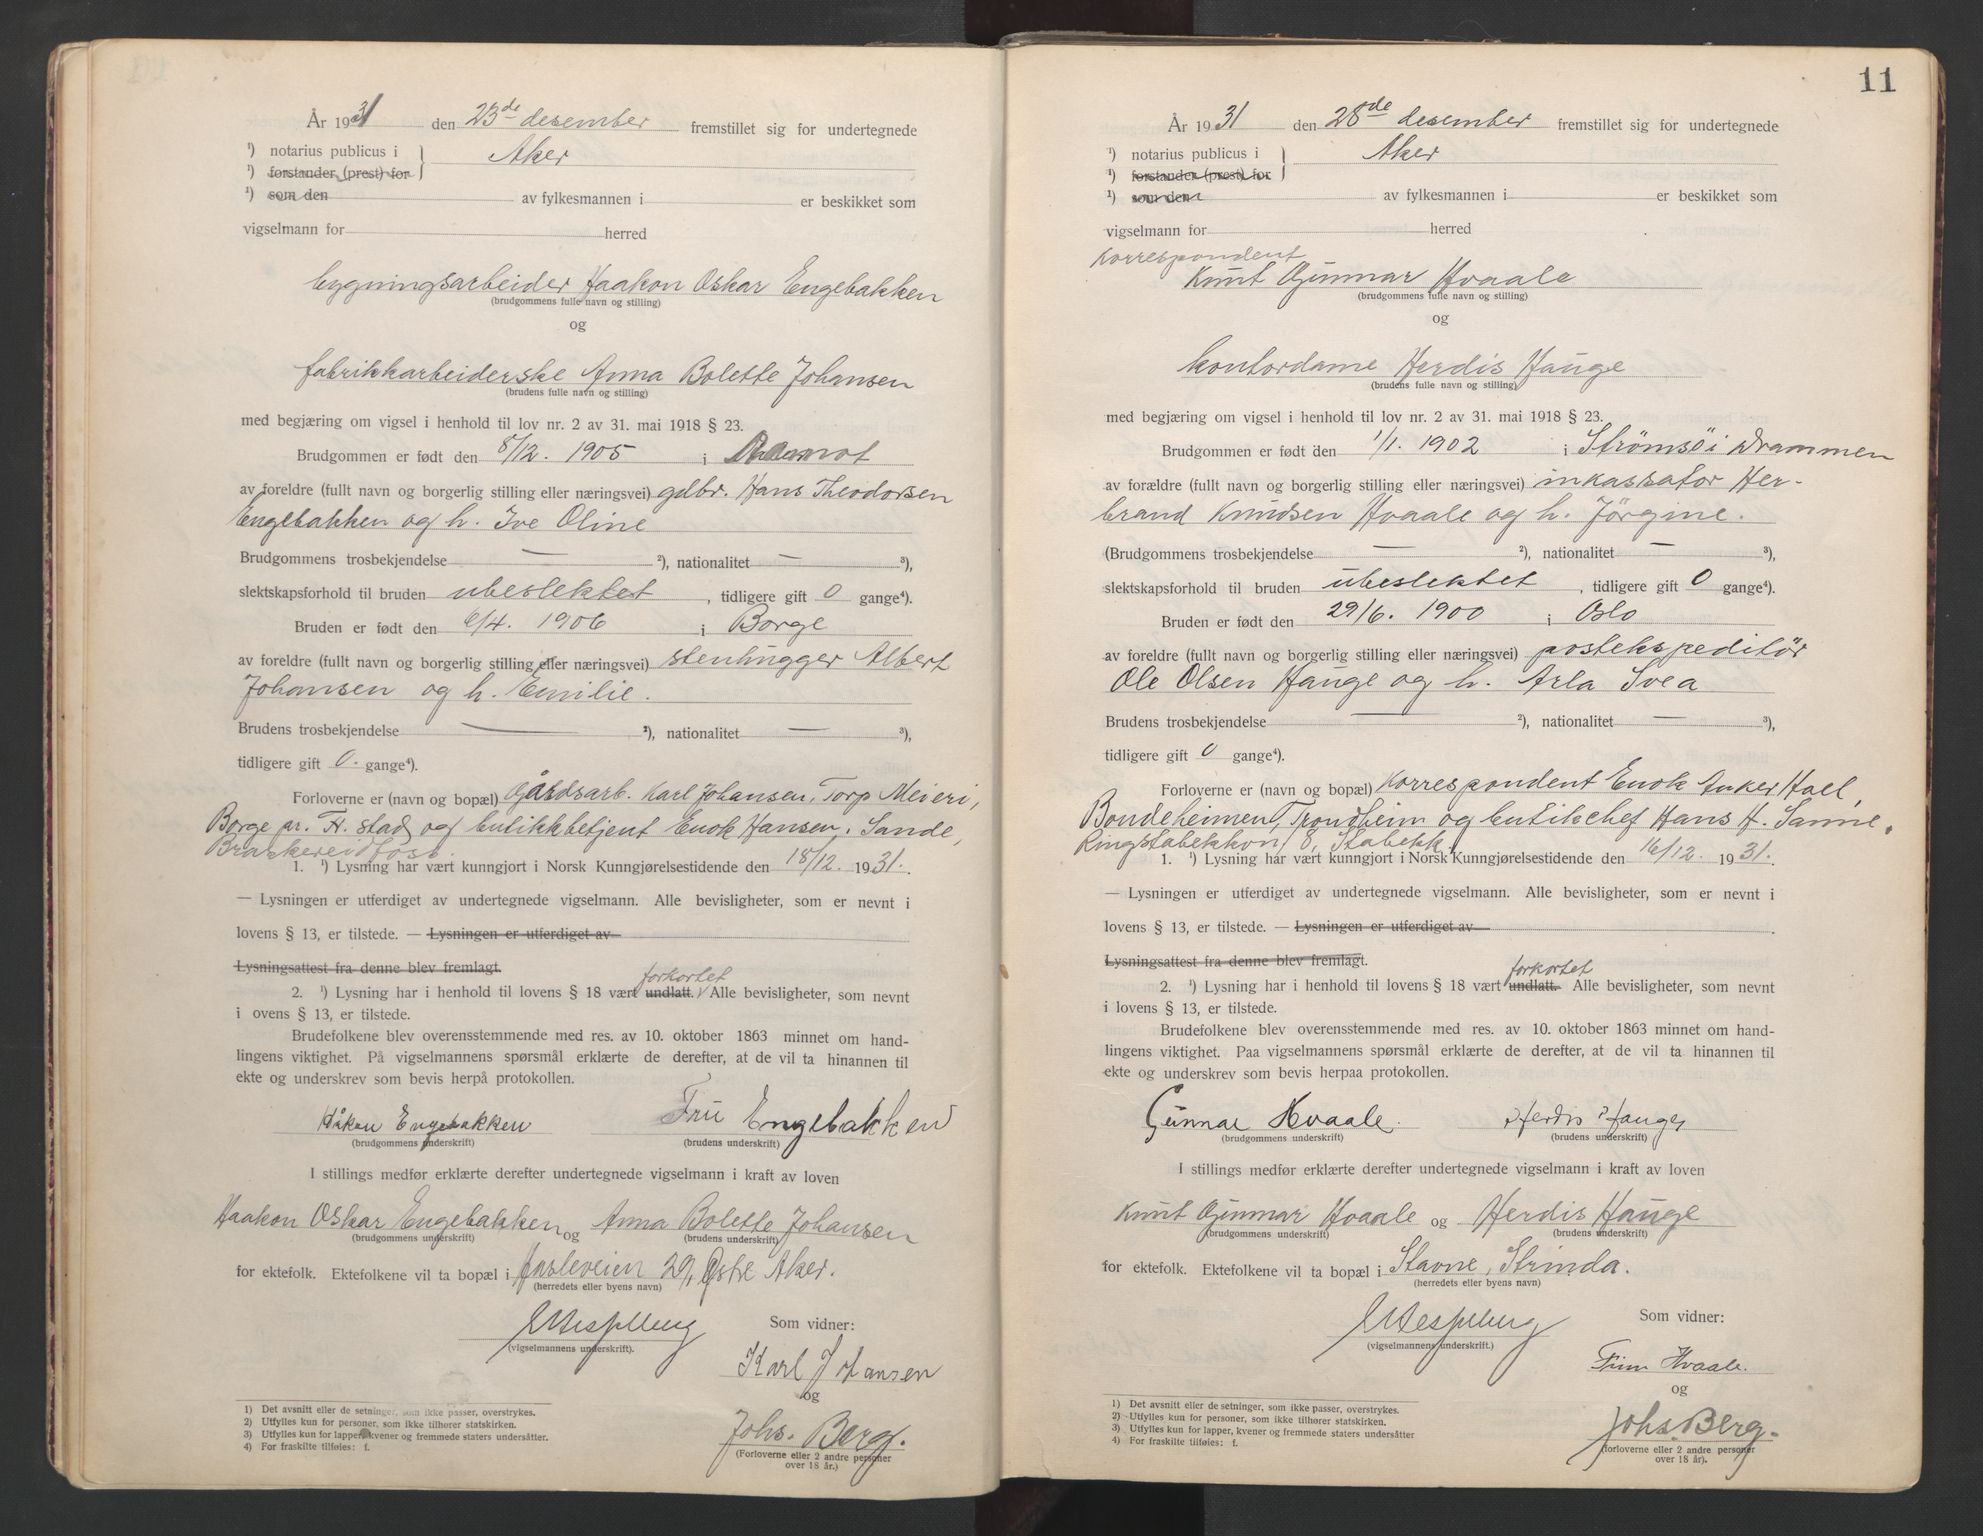 År 1931 den 23de desember fremstillet sig for undertegnede
¹) notarius publicus i } Aker
¹) forstander (prest) for
¹) som den av fylkesmannen i er beskikket som
vigselmann for herred
bygningsarbeider Haakon Oskar Engebakken
(brudgommens fulle navn og stilling)
og
fabrikkarbeiderske Anna Bolette Johansen
(brudens fulle navn og stilling)
med begjæring om vigsel i henhold til lov nr. 2 av 31. mai 1918 § 23.
Brudgommen er født den 8/12. 1905 i
av foreldre (fullt navn og borgerlig stilling eller næringsvei) gdbr. Hans Theodorsen
Engebakken og h. Ive Oline
Brudgommens trosbekjendelse — ²), nationalitet — ³),
slektskapsforhold til bruden ubeslektet, tidligere gift 0 gange⁴).
Bruden er født den 6/4. 1906 i Borge
av foreldre (fullt navn og borgerlig stilling eller næringsvei) stenhugger Albert
Johansen og h. Emilie.
Brudens trosbekjendelse — ²), nationalitet — ³),
tidligere gift 0. gange⁴).
Forloverne er (navn og bopæl) Gårdsarb. Karl Johansen, Torp Meieri,
Borge pr. Fr. stad og butikkbetjent Enok Hansen. Sande,
1. ¹) Lysning har vært kunngjort i Norsk Kunngjørelsestidende den 18/12. 1931.
— Lysningen er utferdiget av undertegnede vigselmann. Alle bevisligheter, som er nevnt i
lovens § 13, er tilstede. — Lysningen er utferdiget av
Lysningsattest fra denne blev fremlagt.
forkortet
2. ¹) Lysning har i henhold til lovens § 18 vært undlatt. Alle bevisligheter, som nevnt
i ovens § 13, er tilstede.
Brudefolkene blev overensstemmende med res. av 10. oktober 1863 minnet om hand-
lingens viktighet. På vigselmannens spørsmål erklærte de derefter, at de vil ta hinannen til
ekte og underskrev som bevis herpå protokollen.
Håkon Engebakken Fru Engebakken
(brudgommens underskrift) (brudens underskrift)
I stillings medfør erklærte derefter undertegnede vigselmann i kraft av loven
Haakon Oskar Engebakken og Anna Bolette Johansen
(brudgommens underskrift) (brudens underskrift)
for ektefolk. Ektefolkene vil ta bopæl i Hasleveien 29, Østre Aker.
(herredets eller byens navn)
Som vidner:
(vigselmannens underskrift).
Karl Johansen
og
Johs. Berg.
(Forloverne eller 2 andre personer
over 18 år.)
1) Det avsnitt eller de setninger, som ikke passer, overstrykes.
2) Utfylles kun for personer, som ikke tilhører statskirken.
3) Utfylles kun for lapper, kvener og fremmede staters undersåtter.
4) For fraskilte tilføies: f.
11
År 1931 den 28de desember fremstillet sig for undertegnede
¹) notarius publicus i } Aker
¹) forstander (prest) for
¹) som den av fylkesmannen i er beskikket som
vigselmann for herred
korrespondent
Knut Gunnar Hvaale
(brudgommens fulle navn og stilling)
og
kontordame Herdis Hauge
(brudens fulle navn og stilling)
med begjæring om vigsel i henhold til lov nr. 2 av 31. mai 1918 § 23.
Brudgommen er født den 1/1. 1902 i Strømsö i Drammen
av forældre (fullt navn og borgerlig stilling eller næringsvei) inkassator Her-
brand Knudsen Hvaale og h. Jörgine.
(Brudgommens trosbekjendelse — ²), nationalitet — ³),
slektskapsforhold til bruden ubeslektet, tidligere gift 0 gange⁴).
Bruden er født den 29/6. 1900 i Oslo
av foreldre (fullt navn og borgerlig stilling eller næringsvei) postekspeditör
Ole Olsen Hauge og h. Arla Svea
Brudens trosbekjendelse — ²), nationalitet — ³),
tidligere gift 0 gange⁴).
Forloverne er (navn og bopæl) korrespondent Enok Anker Hael,
Bondeheimen, Trondheim og butikchef Hans H. Sanne,
Ringstabekkv 8, Stabekk.
1. ¹) Lysning har vært kunngjort i Norsk Kunngjørelsestidende den 16/12. 1931.
— Lysningen er utferdiget av undertegnede vigselmann. Alle bevisligheter, som er nevnt i
lovens § 13, er tilstede. — Lysningen er utferdiget av
Lysningsattest fra denne blev fremlagt.
forkortet
2. ¹) Lysning har i henhold til lovens § 18 vært undlatt. Alle bevisligheter, som nevnt
i lovens § 13, er tilstede.
Brudefolkene blev overensstemmende med res. av 10. oktober 1863 minnet om hand-
lingens viktighet. Paa vigselmannens spørsmål erklærte de derefter, at de vil ta hinannen til
ekte og underskrev som bevis herpaa protokollen.
Gunnar Hvaale. Herdis Hauge
(brudgommens underskrift) (brudens underskrift)
I stillings medfør erklærte derefter undertegnede vigselmann i kraft av loven
Knut Gunnar Hvaale og Herdis Hauge
(brudgommens underskrift) (brudens underskrift)
for ektefolk. Ektefolkene vil ta bopæl i Stavne, Strinda.
(herredets eller byens navn)
Som vidner:
(vigselmannens underskrift.)
Finn Hvaale.
og
Johs. Berg.
(forloverne eller 2 andre personer
over 18 år).
1) Det avsnitt eller de setninger, som ikke passer, overstrykes.
2) Utfylles kun for personer, som ikke tilhører statskirken.
3) Utfylles kun for lapper, kvener og fremmede staters undersåtter
4) For fraskilte tilføies: f.